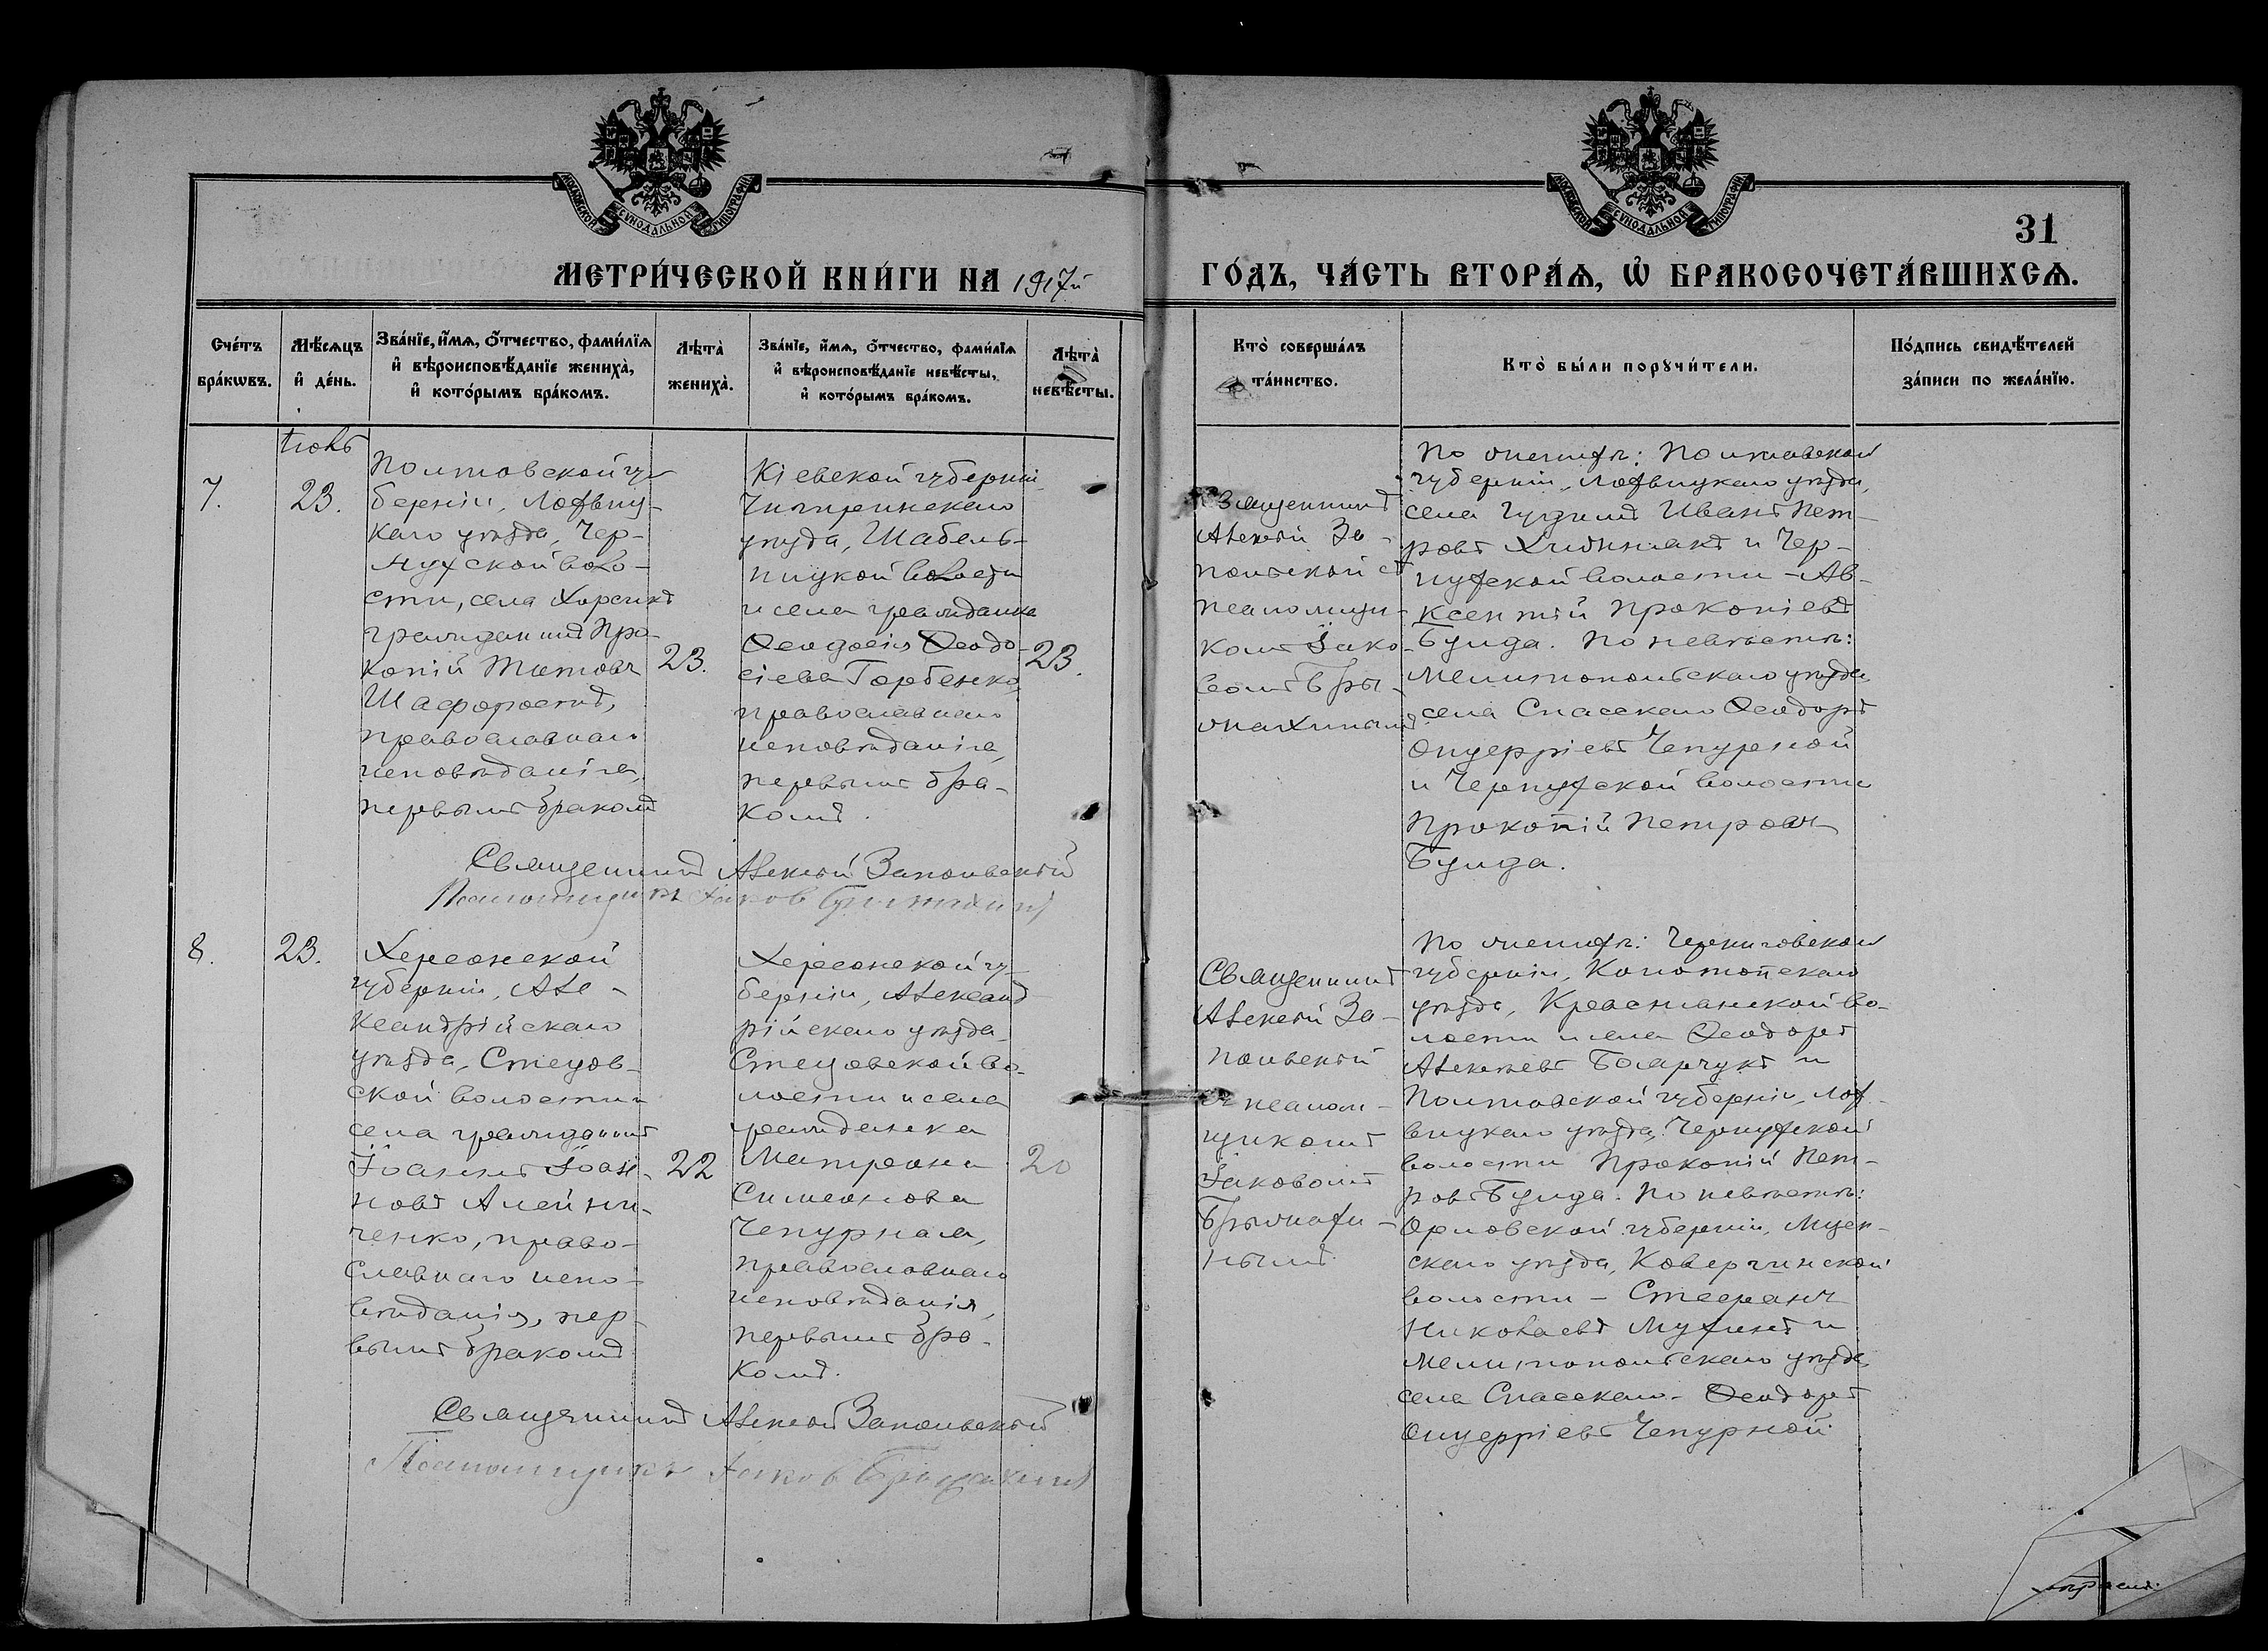 МОСКОВСКОЙ СѴНОДАЛЬНОЙ ТИПОГРАФІИ
МОСКОВСКОЙ СѴНОДАЛЬНОЙ ТИПОГРАФІИ
31
МЕТРИ́ЧЕСКОЙ КНИ́ГИ НА 1917й
ГО́ДЪ, ЧА́СТЬ ВТОРА́Ѧ, Ѡ БРАКОСОЧЕТА́ВШИХСѦ.
Сче́тъ
бра́кѡвъ.
Мѣ́сѧцъ
и҆ де́нь.
Зва́нїе, и҆́мѧ, ѻ҆́тчество, фами́лїѧ
и҆ вѣроисповѣ́данїе жениха̀,
и҆ кото́рымъ бра́комъ.
Лѣта̀
жениха̀.
Зва́нїе, и҆́мѧ, ѻ҆́тчество, фами́лїѧ
и҆ вѣроисповѣ́данїе невѣ́сты,
и҆ кото́рымъ бра́комъ.
Лѣта̀
невѣ́сты.
Кто̀ соверша́лъ
та́инство.
Кто̀ бы́ли порꙋчи́тели.
По́дпись свидѣ́телей
за́писи по жела́нїю.
7.
23.
Полтовской гу-
берніи, Лохвиц-
каго уѣзда, Чер-
нухской воло-
сти, села Харсикъ
гражданинъ Про-
копій Титовъ
Шафоростъ,
православнаго
исповѣданія,
первымъ бракомъ
23.
Кіевской губерніи
Чигиринскаго
уѣзда, Шабель-
ницкой волости
и села гражданка
Ѳеодосія Ѳеодо-
сіева Горбенко,
православнаго
исповѣданія,
первымъ бра-
комъ.
23.
Священникъ
Алексѣй За-
польскій съ
псаломщи-
комъ Іако-
вомъ
По женихѣ: Полтавской
губерніи, Лохвицкаго уѣзда,
села Иванъ Пет-
ровъ и Чер-
нухской волости - Ав-
ксентій Прокопіевъ
Бумда. По невѣстѣ:
Мелитопольскаго уѣзда,
села Спасскаго Ѳеодоръ
Онуфріевъ Чепурной
и Чернухской волости
Прокопій Петровъ
Священникъ Алексѣй Запольскій
Псаломщикъ Іаков
8.
23.
Херсонской
губерніи, Але-
ксандрійскаго
уѣзда, Стецов-
ской волости и
села гражданинъ
Іоаннъ Іоан-
новъ Алейни-
ченко, право-
славнаго испо-
вѣданія, пер-
вымъ бракомъ
22
Херсонской гу-
берніи, Александ-
рійскаго уѣзда
Стецовской во-
лости и села
гражданка
Матрона
Симеонова
Чепурная,
православнаго
исповѣданія,
первымъ бра-
комъ.
20
Священникъ
Алексѣй За-
польскій
съ псалом-
щикомъ
Іаковомъ
По женихѣ: Черниговской
губерніи, Конотопскаго
уѣзда, во-
лости и села Ѳеодоръ
Алексѣевъ Боярчукъ и
Полтовской губерніи, Лох-
вицкаго уѣзда, Чернухской
волости Прокопій Пет-
ровъ По невѣстѣ:
Орловской губерніи, Мцен-
скаго уѣзда,
волости - Стефанъ
Николаевъ Мухинъ и
Мелитопольскаго уѣзда
села Спасскаго - Ѳеодоръ
Онуфріевъ Чепурной
Священникъ Алексѣй Запольскій
Псаломщикъ Іаков